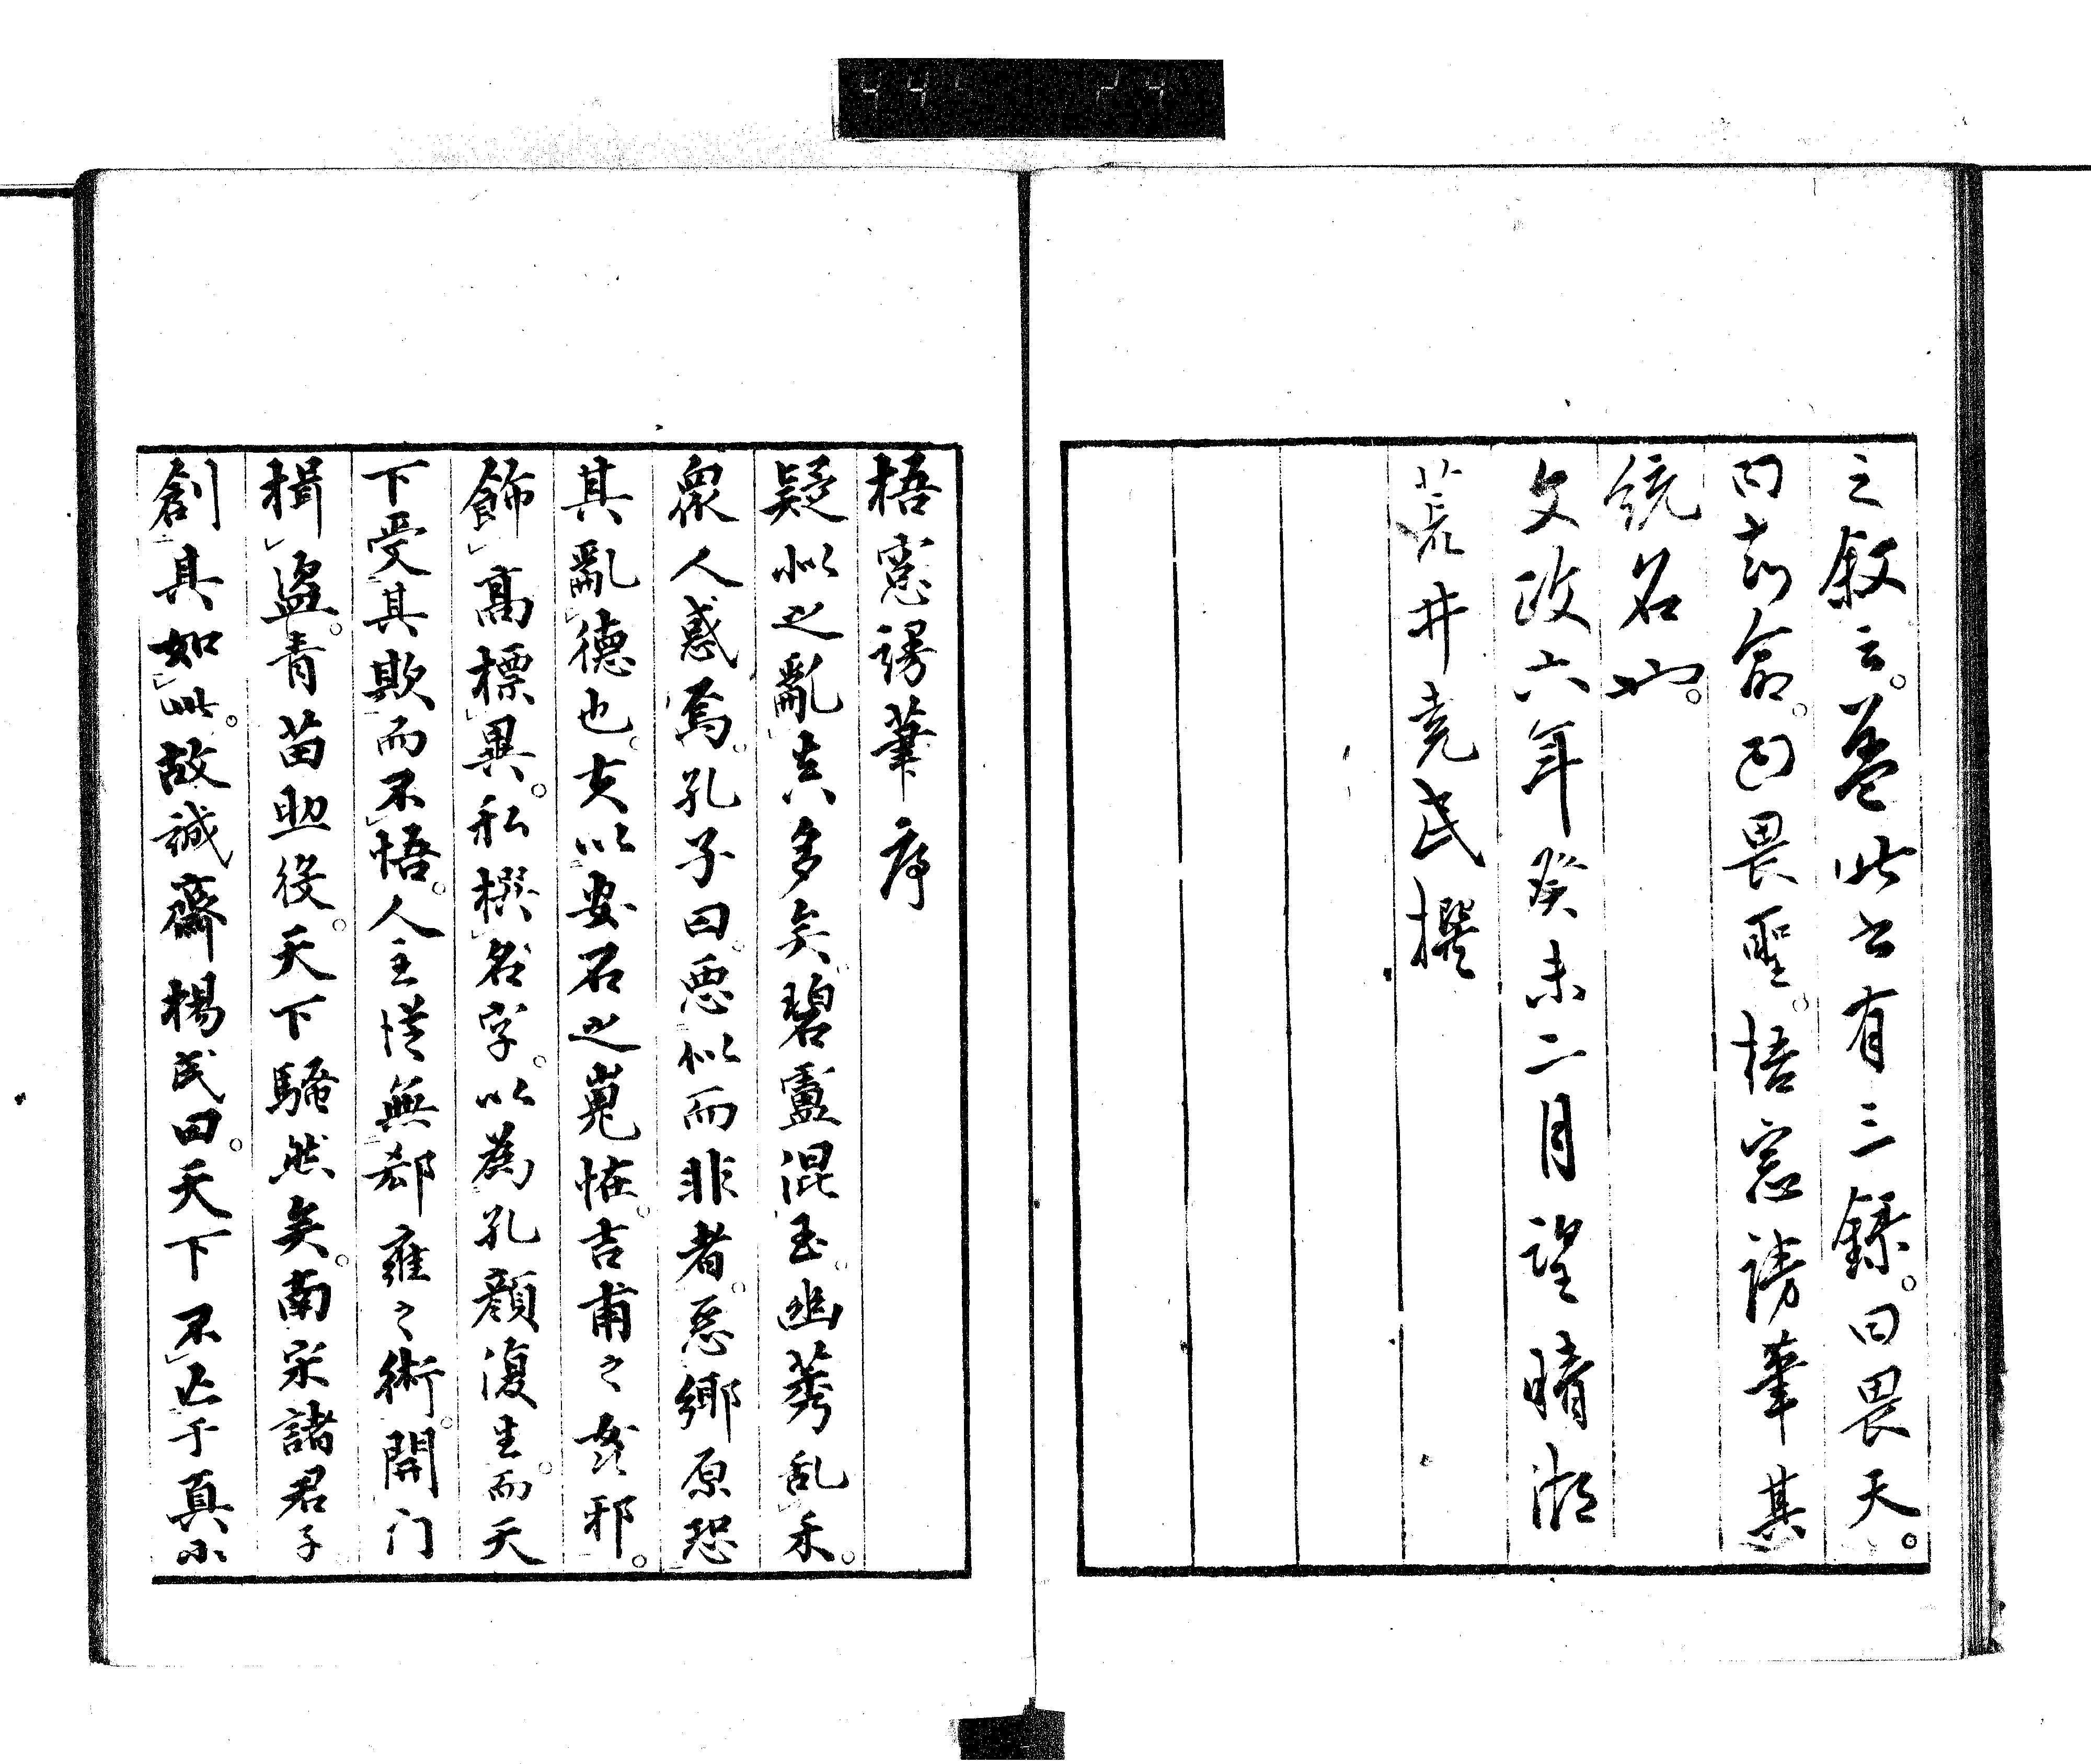 之叙云。蓋此書有三録。曰畏天。
曰知命。曰畏聖。梧窓謗筆其
統名也。
文政六年癸未二月望晴湖
荒井堯民撰
梧窓謗筆序
疑似之亂真多矣。碧盧混玉。幽莠乱禾。
衆人惑焉。孔子曰。悪似而非者。惡鄉原恐
其亂德也。夫以安石之嵬恠。吉甫之姦邪。
飾高標異。私撰名字。以為孔顔復生。而天
下受其欺而不悟。人主慌無郄雍之術。開门
揖盗。青苗助役。天下騒然矣。南宋諸君子
創其如此。故誠齋楊氏曰。天下不亡于真小